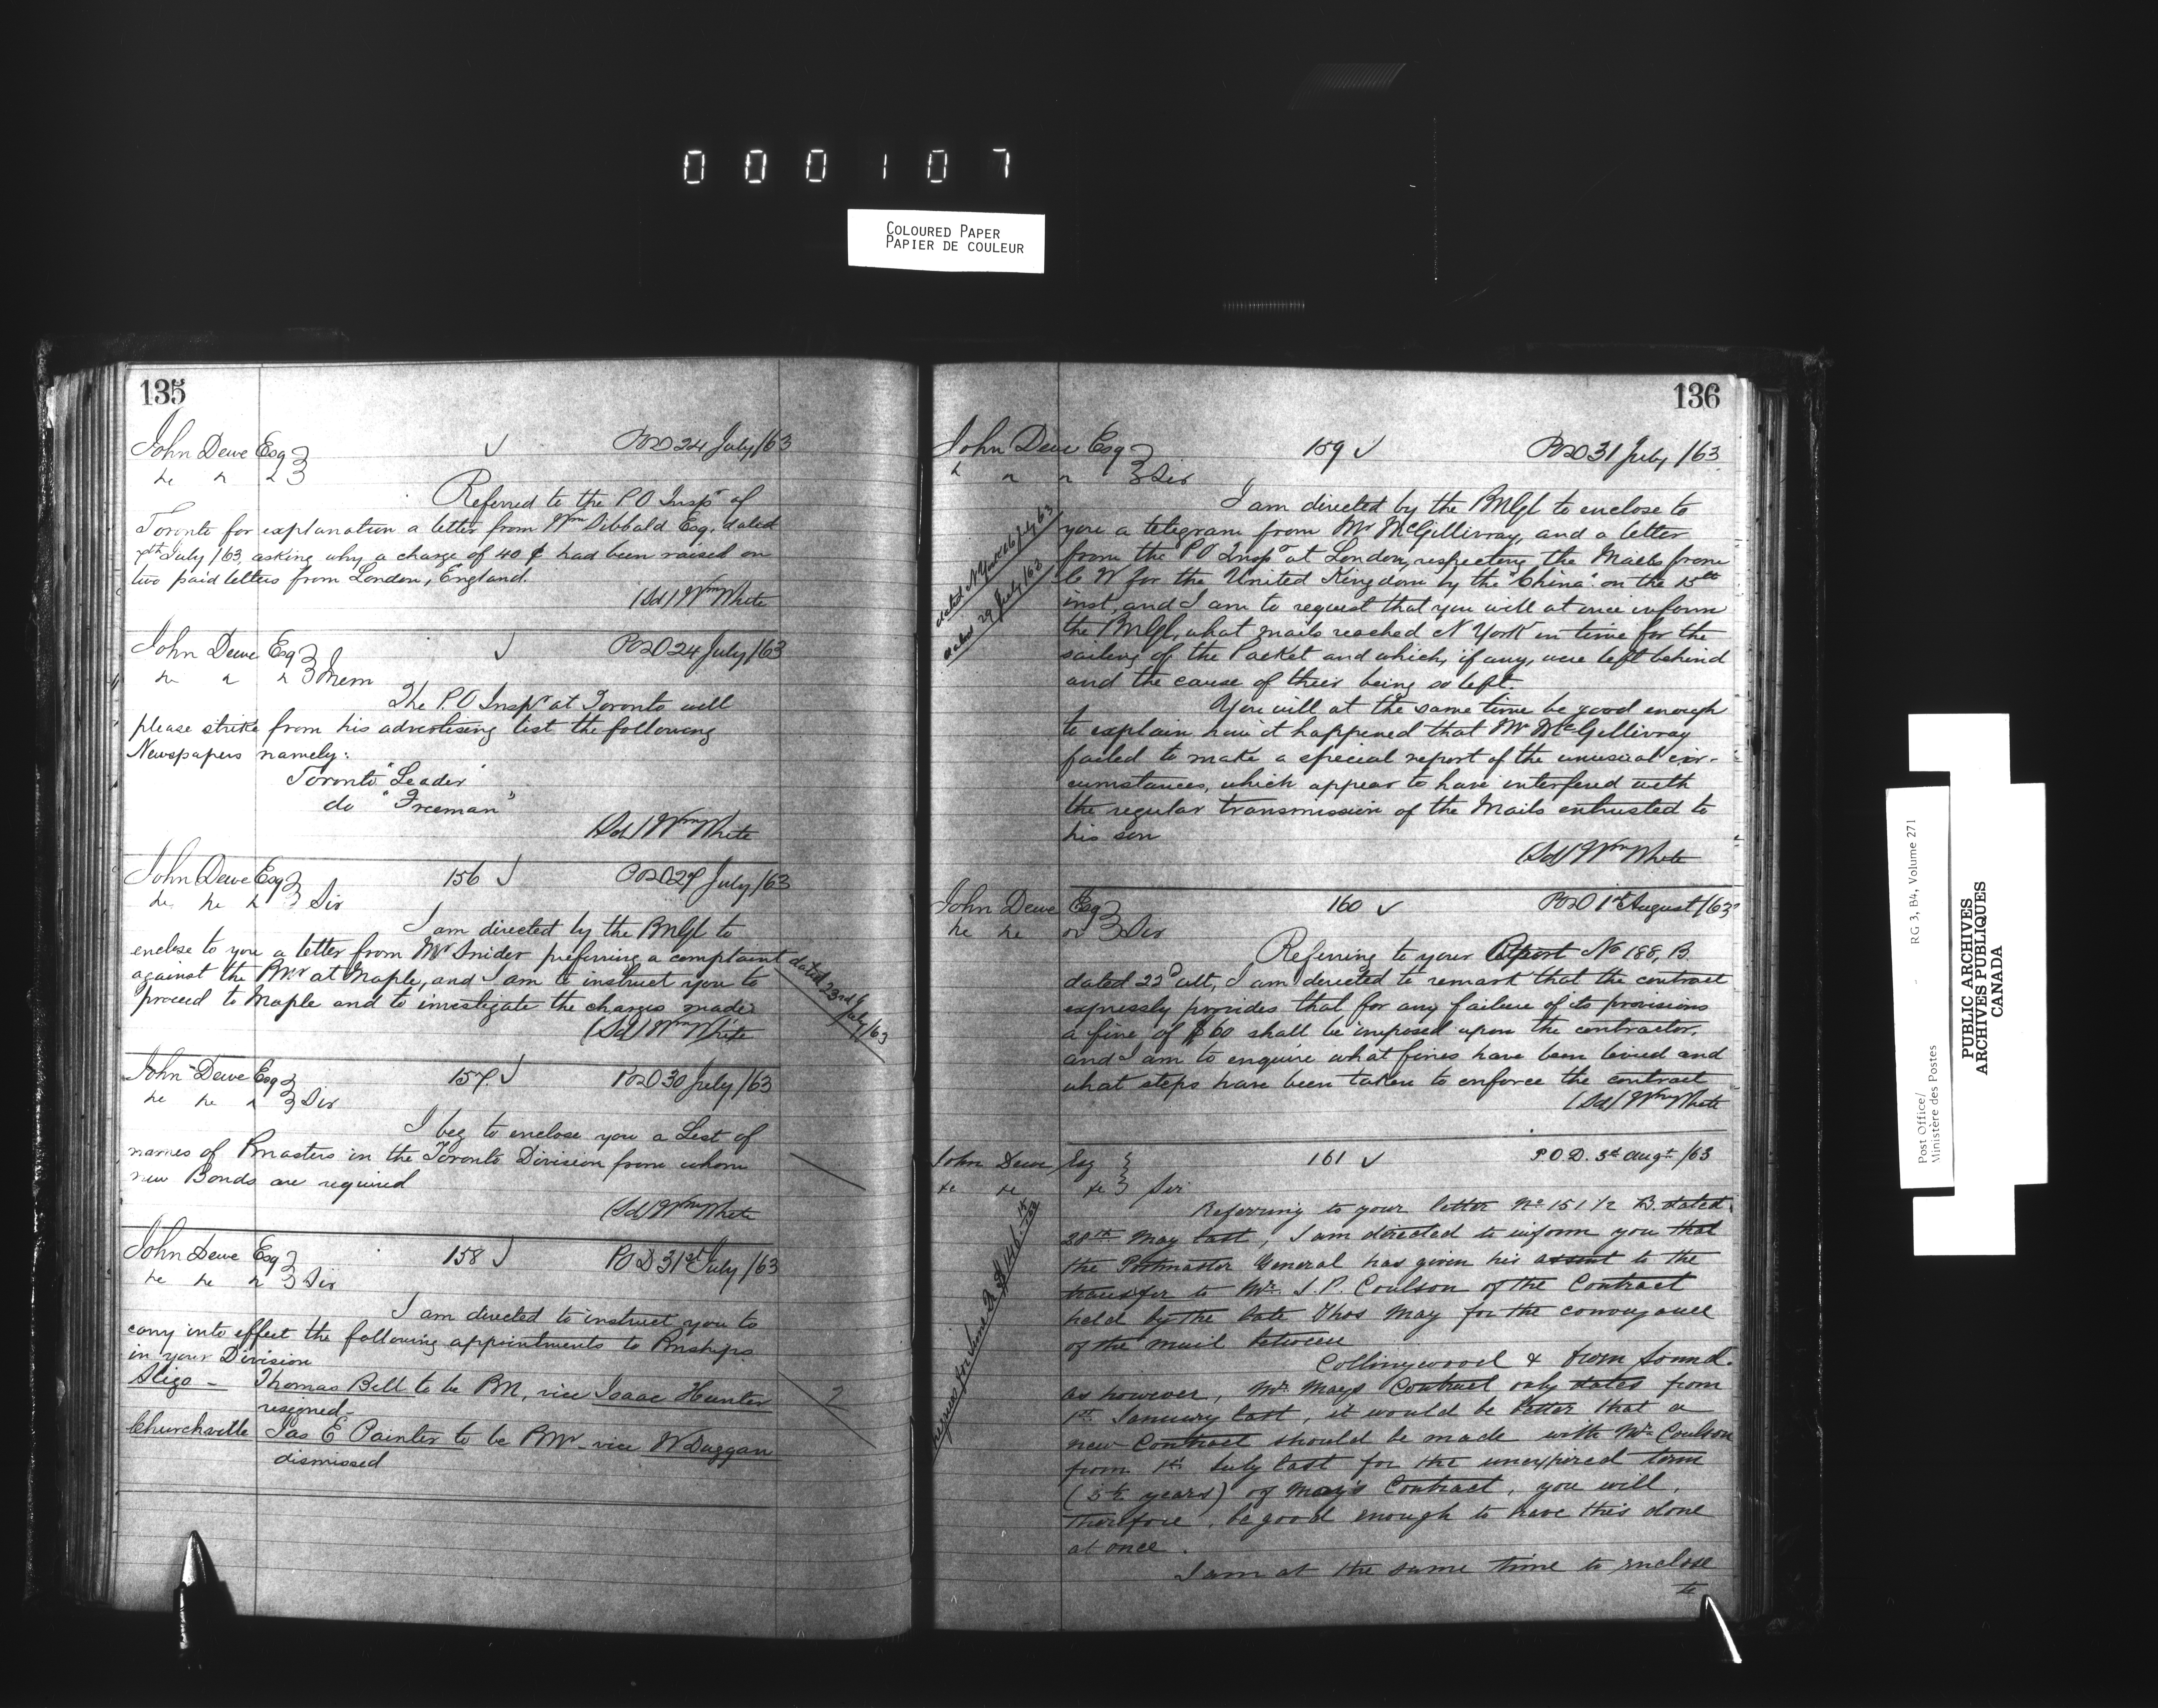 000107
COLOURED PAPER
PAPIER DE COULEUR
135
John Dewe Esq POD 24 July /63
Referred to the P.O Inspr of
Toronto for explanation a letter from Wm Sibbald Esq, dated
7th July /63, asking why a charge of 40 ¢ had been raised on
two paid letters from London, England.
(Sd) Wm White
John Dewe Esq POD 24 July /63
Mem
The P.O Inspr at Toronto will
please strike from his advertising list the following
Newspapers namely:
Toronto "Leader"
do "Freeman"
(Sd) Wm White
John Dewe Esq 156 POD 27 July /63
Sir
I am directed by the PMGl to
enclose to you a letter from Mr Snider preferring a complaint
dated 23rd July /63
against the PMr at Maple, and I am to instruct you to
proceed to Maple and to investigate the charges made
(Sd) Wm White
John Dewe Esq 157 POD 30 July /63
Sir
I beg to enclose you a List of
names of Pmasters in the Toronto Division from whom
new Bonds are required
(Sd) Wm White
John Dewe Esq 158 POD 31st July /63
Sir
I am directed to instruct you to
carry into effect the following appointments to Pmships
in your Division
Sligo - Thomas Bell to be PM, vice Isaac Hunter
resigned - 2
Churchville Jas E Painter to be PMr vice W Duggan
dismissed
136
John Dewe Esq 159 POD 31 July /63
Sir
I am directed by the PMGl to enclose to
you a telegram from Mr McGillivray, and a letter
dated N York 26 July 63
from the PO Inspr at London, respecting the Mails from
dated 29 July /63
C W for the United Kingdom by the "China" on the 15th
inst, and I am to request that you will at once inform
the PMGl, what mails reached N York in time for the
sailing of the Packet and which, if any, were left behind
and the cause of their being so left.
You will at the same time be good enough
to explain how it happened that Mr McGillivray
failed to make a special report of the unusual cir-
cumstances, which appear to have interfered with
the regular transmission of the Mails entrusted to
his son
(Sd) Wm White
John Dewe Esq 160 POD 1st August /63
Sir
Referring to your Report No 188, B.
dated 22d ult, I am directed to remark that the contract
expressly provides that for any failure of its provisions
a fine of $60 shall be imposed upon the contractor,
and I am to enquire what fines have been levied and
what steps have been taken to enforce the contract
(Sd) Wm White
John Dewe Esq 161 P.O.D. 3d Augt /63
Sir
Referring to your letter No 151 1/2 B. dated
28th May last, I am directed to inform you that
the Postmaster General has given his assent to the
transfer to Mr. J. P. Coulson of the Contract
held by the late Thos May for the conveyance
of the mail between
Collingwood & Owen Sound.
as however, Mr. Mays Contract only dates from
1st January last, it would be better that a
new Contract should be made with Mr Coulson
from 1st July last for the unexpired term
(3 1/2 years) of May's Contract, you will,
therefore, be good enough to have this done
at once.
I am at the same time to enclose
to
Post Office/
Ministère des Postes
RG 3, B4, Volume 271
PUBLIC ARCHIVES
ARCHIVES PUBLIQUES
CANADA